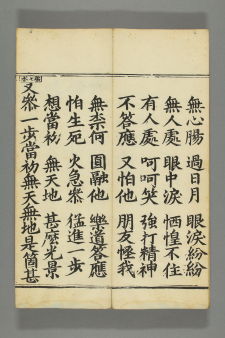 無心腸 過日月 眼淚紛紛
無人處 眼中淚 恓惶不住
有人處 呵呵笑 強打精神
不答應 又怕他 朋友怪我
無柰何 圓融他 樂道答應
怕生死 火急叅 猛進一步
想當初 無天地 甚麽光景
又叅一步當初無天無地是箇甚